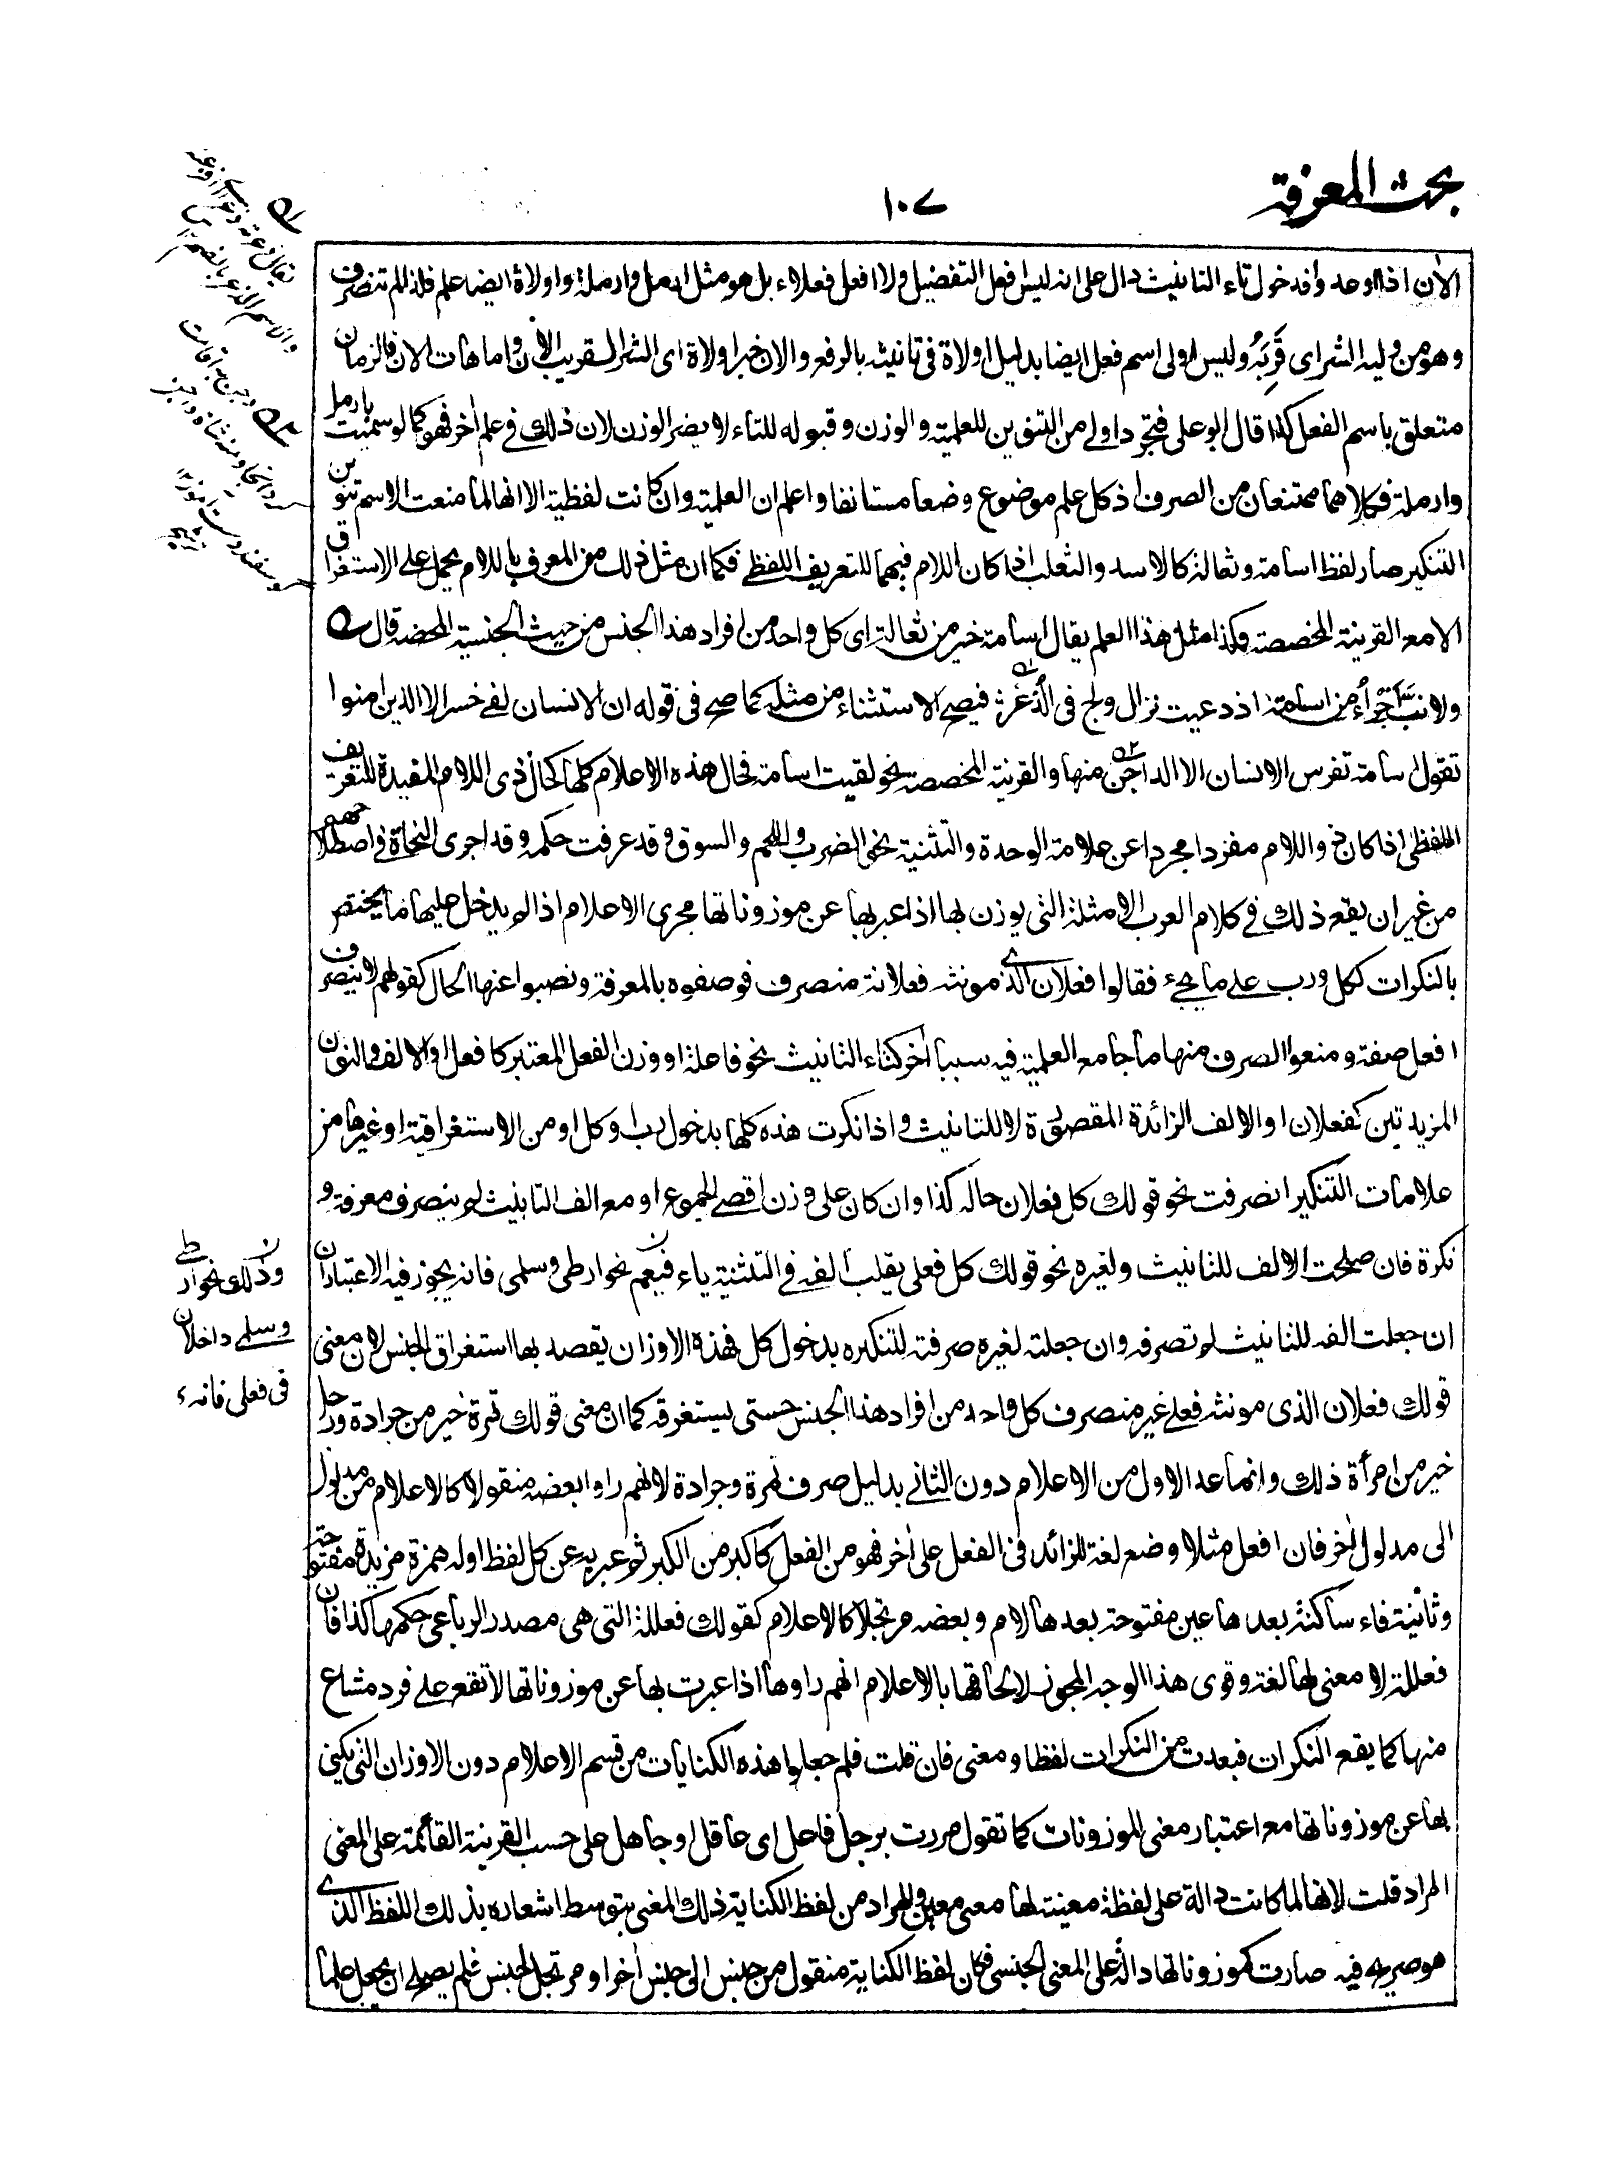 بحث المعرفة
١٠٧
الاٰن اذا اوعد وافد خول تاء التانيث دال على انه ليس افعل التفضيل ولا افعل فعلاء بل هو مثل ارمل وارملة واولاة ايضه علم فلذا لم تنصرف
وهو من وليه الشر اى قَرِبَهُ وليس اولى اسم فعل ايضا بدليل اولاة فى تانيثه بالرفع والاٰن خبر اولاة اى الشر القريب الاٰن واما هات الاٰن فالزمان
متعلق باسم الفعل كذا قال ابو على فتجرد اولى من التنوين للعلمية والوزن وقبوله للتاء لا يضر الوزن لان ذلك فى علم اٰخر فهو كما لو سميت بارمل
وارملة فكلاهما ممتنعان من الصرف اذ كل علم موضوع وضعا مستانفا واعلم ان العلمية وان كانت لفظية الا انها لما منعت الاسم تنوين
التنكير صار لفظ اسامة وثعالة كالاسد والثعلب اذا كان اللام فيهما للتعريف اللفظے فكما ان مثل ذلك من المعرف باللام يحمل على الاستغراق
الا مع القرينة المخصصة فكذا مثل هذا العلم يقال اسامة خير من ثعالة اى كل واحد من افراد هذا الجنس من حيث الجنسية المحضة قال
ولانت اَجْرَأُ من اسامة اذ دعيت نزال ولج فى الذعر فيصح الاستثناء من مثله كما صح فى قوله ان الانسان لفے خسر الا الذين اٰمنوا
تقول اسامة تفرس الانسان الا الداجن منها والقرينة المخصصة نحو لقيت اسامة فحال هذه الاعلام كلها كحال ذى اللام المفيدة للتعريف
اللفظى اذا كان ذو اللام مفردا مجردا عن علامة الوحدة والتثنية نحو الضرب واللحم والسوق وقد عرفت حكمه وقد اجرى النحاة فى اصطلاحهم
من غير ان يقع ذلك فى كلام العرب الامثلة التى يوزن بها اذا عبر بها عن موزوناتها مجرى الاعلام اذا لم يدخل عليها ما يختص
بالنكرات ككل ورب على ما يجىء فقالوا فعلان الذے مونثه فعلانة منصرف فوصفوه بالمعرفة ونصبوا عنها الحال كقولهم لا ينصرف
افعل صفة ومنعوا الصرف منها ما جامع العلمية فيه سببا اٰخر كتاء التانيث نحو فاعلة او وزن الفعل المعتبر كافعل او الالف والنون
المزيدتين كفعلان او الالف الزائدة المقصورة لا للتانيث واذا نكرت هذه كلها بدخول رب او كل او من الاستغراقية او غيرها من
علامات التنكير انصرفت نحو قولك كل فعلان حاله كذا وان كان على وزن اقصى الجموع او مع الف التانيث لم ينصرف معرفة و
نكرة فان صلحت الالف للتانيث ولغيره نحو قولك كل فعلى يقلب الفه فى التثنية ياء فيعم نحو ارطى وسلمى فانه يجوز فيه الاعتباران
ان جعلت الفه للتانيث لم تصرفه وان جعلته لغيره صرفته لتنكيره بدخول كل فهذه الاوزان يقصد بها استغراق الجنس لان معنى
قولك فعلان الذى مونثه فعلى غير منصرف كل واحد من افراد هذا الجنس حتى يستغرقه كما ان معنى قولك تمرة خير من جرادة ورجل
خير من امرأة ذلك وانما عد الاول من الاعلام دون الثانى بدليل صرف تمرة وجرادة لانهم راوا بعضه منقولا كالاعلام من مدلول
الى مدلول اٰخر فان افعل مثلا وضع لغة للزائد فى الفعل على اٰخر فهو من الفعل كاكبر من الكبر ثم عبر به عن كل لفظ اوله همزة مزيدة مفتوحة
وثانية فاء ساكنة بعدها عين مفتوحة بعدها لام وبعضه مرتجلا كالاعلام كقولك فعللة التى هى مصدر الرباعى حكمها كذا فان
فعللة لا معنى لها لغة وقوى هذا الوجه المجوز لالحاقها بالاعلام انهم راوها اذا عبرت بها عن موزوناتها لا تقع على فرد مشاع
منها كما يقع النكرات فبعدت من النكرات لفظا ومعنى فان قلت فلم جعلوا هذه الكنايات من قسم الاعلام دون الاوزان التى يكنى
بها عن موزوناتها مع اعتبار معنى الموزونات كما تقول مررت برجل فاعل اى عاقل او جاهل على حسب القرينة القائمة على المعنى
المراد قلت لانها لما كانت دالة على لفظة معينة لها معنى معين والمراد من لفظ الكناية ذلك المعنى بتوسط اشعاره بذلك اللفظ الذے
هو صريح فيه صارت كموزوناتها دالة على المعنى الجنسى فكان لفظ الكناية منقول من جنس الى جنس اٰخر او مرتجل لجنس فلم يصلح ان يجعل علما
وذلك نحو ارطى
وسلمے داخلان
فى فعلى فانه